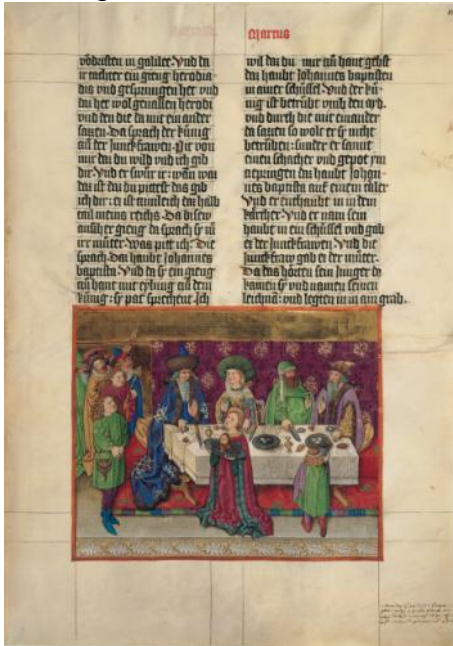 Marcus
vodristen in galilee. Vnd da
ir tochter ein gieng herodia-
dis vnd gesprungen het vnd
daz het wol geuallen herodi
vnd den die da mit ein ander
sazzen. Da sprach der künig
zu der Junckfrawen. Pit von
mir daz du wild vnd ich gib
dir. Vnd er swür ir: wann waz
das ist daz du pittest das gib
ich dir: ez ist auch daz halb
tail meins reichs. Da diseu
auszher gieng da sprach sy zu
irr muter. Was pitt ich. Die
sprach. Daz haubt Johannes
baptista. Vnd da sy ein gieng
zu hant mit eylung zu dem
künig: sy pat sprechent. Ich
wil daz du mir zu hant gebst
daz haubt Johannes baptisten
in ainer schüssel. Vnd der kü-
nig ist betrübt vmb den ayd.
vnd durch die mit einander
da sazzen so wolt er sy nicht
betrüben: sunder er sannt
einen schacher vnd gepot ym
zepringen daz haubt Johan-
nes baptista auf einem taller
Vnd er enthaubt in in dem
karcher. Vnd er nam sein
haubt in ein schüssel vnd gab
ez der junckfrawen. Vnd die
junckfraw gab ez der muter.
Da das hörten sein Junger do
kamen sy vnd namen seinen
leichnam: vnd legten in in ain grab.